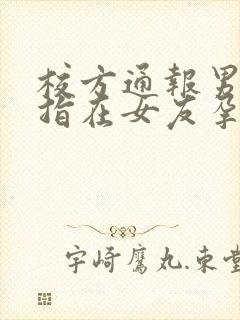 校方通報男
指在女友孕
宇崎鷹丸.束堂